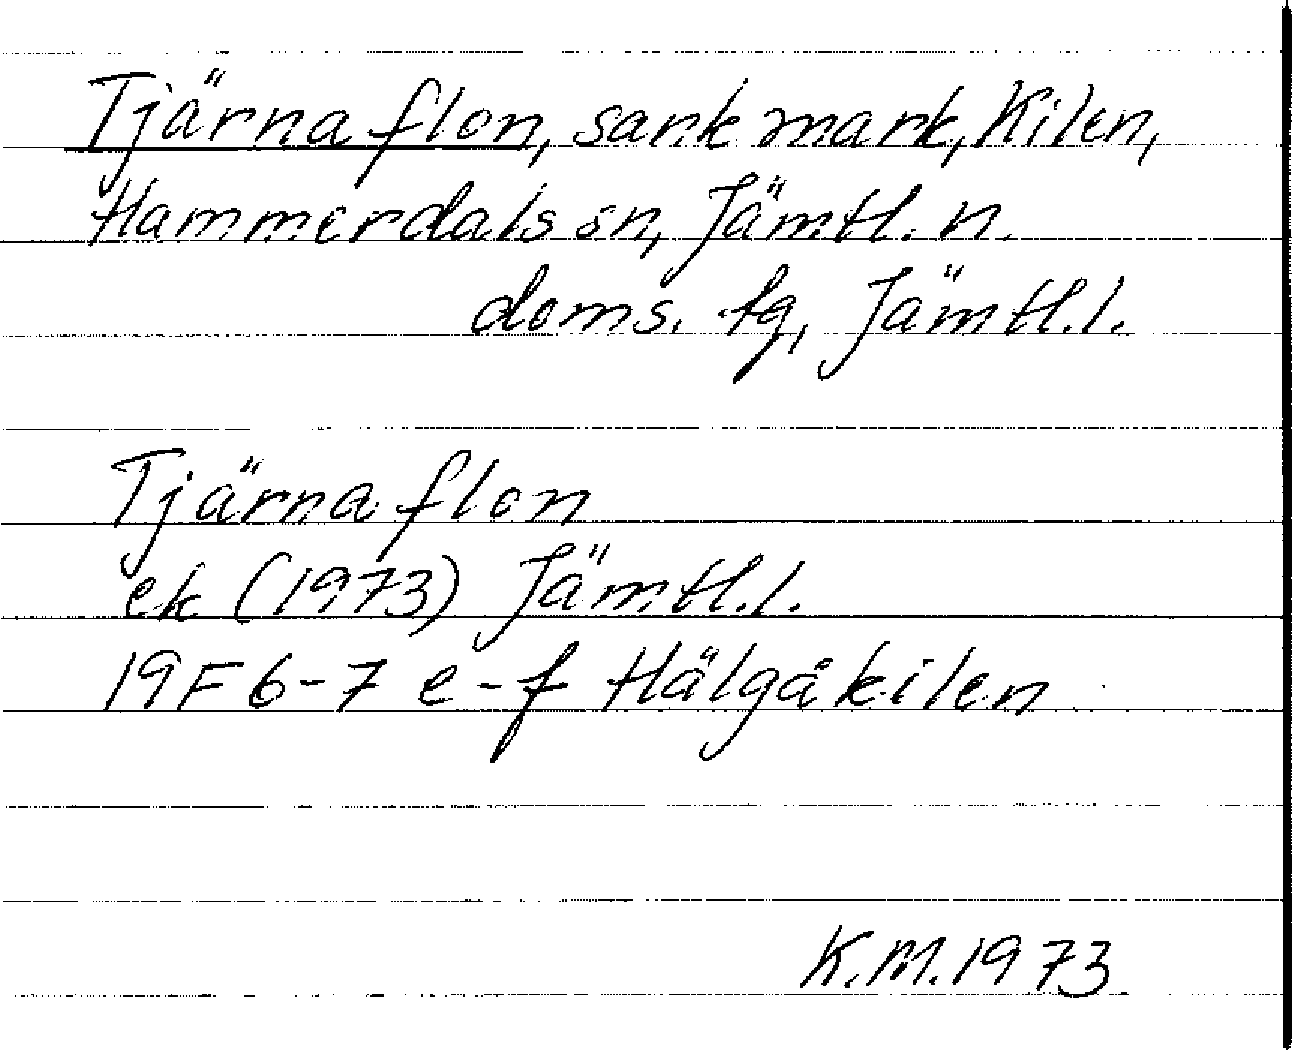 Tjärnaflon, sank mark, Kilen,
Hammerdals sn, Jämtl. n.
doms. tg, Jämtl. l.
Tjärnaflon
ek (1973) Jämtl. l.
19F 6-7 e-f Hälgåkilen
K.M. 1973